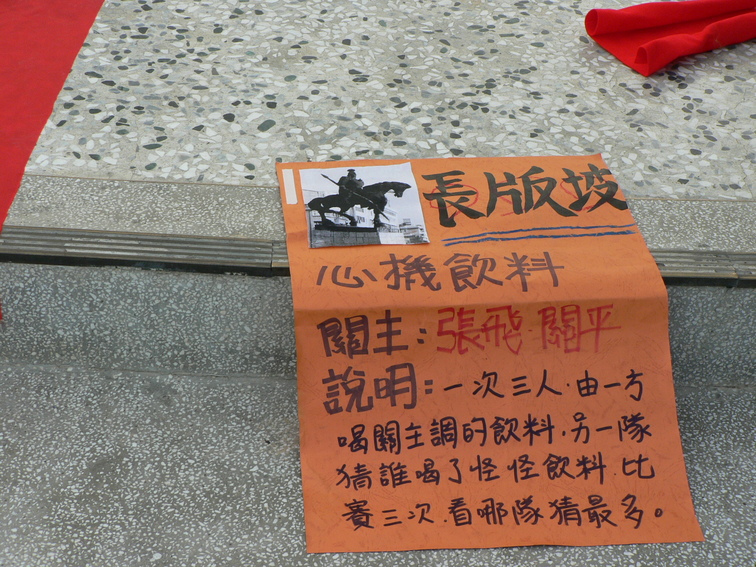 長版坡
心機飲料
關主：張飛 關平
說明：一次三人．由一方
喝關主調的飲料，另一隊
猜誰喝了怪怪飲料．比
賽三次．看哪隊猜最多。